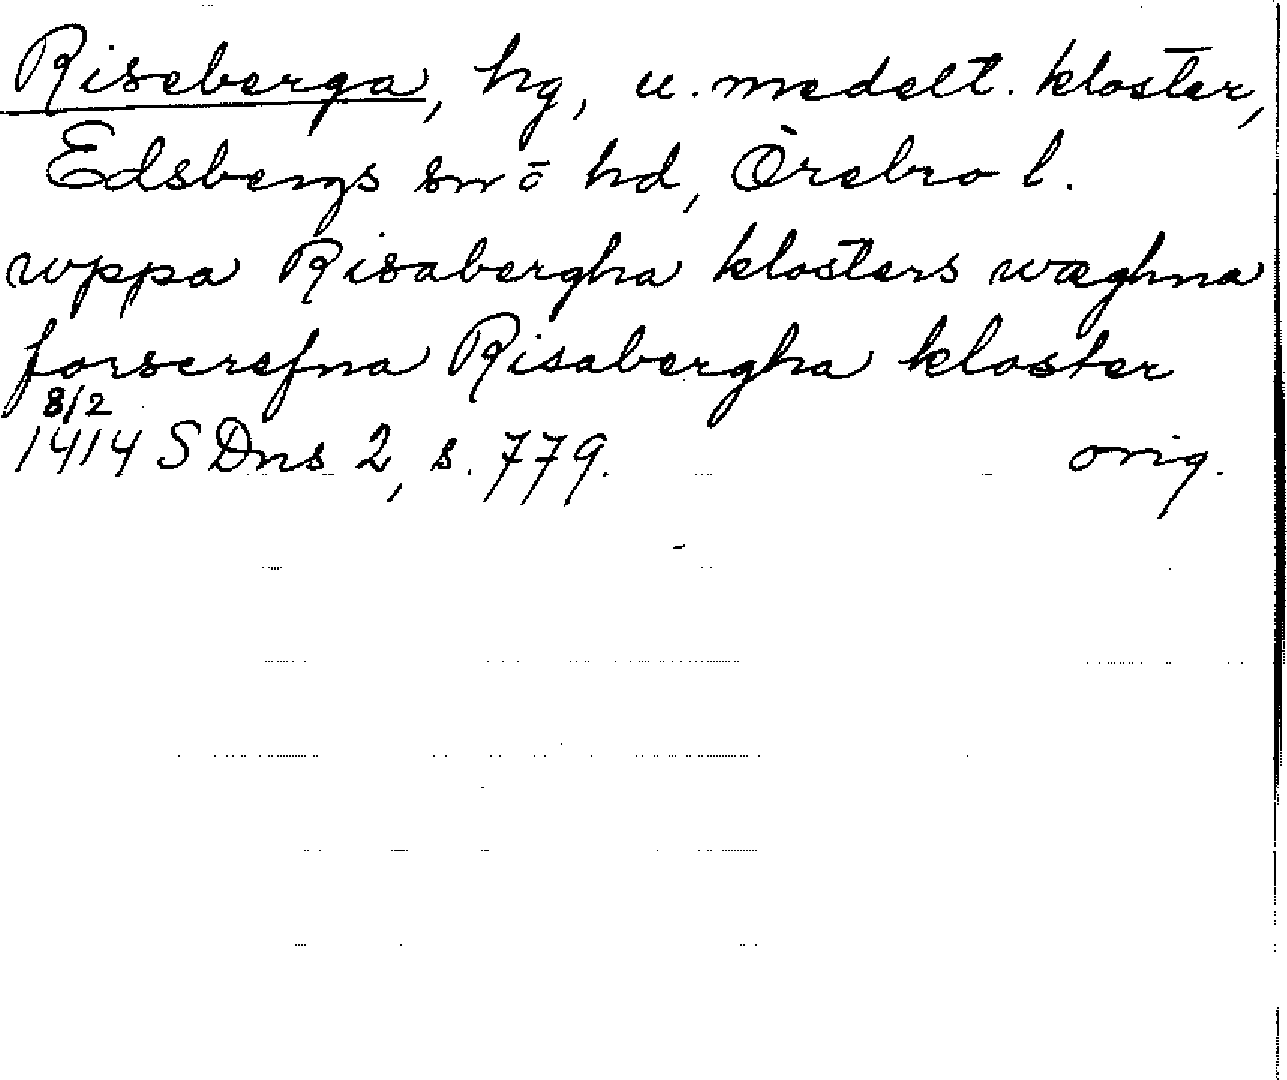 Riseberga, hg, u. medelt. kloster,
Edsbergs sn o hd, Örebro l.
uppa Risabergha klosters wæghna
forscrefna Risabergha kloster
8/2
1414 SDns 2, s. 779. orig.